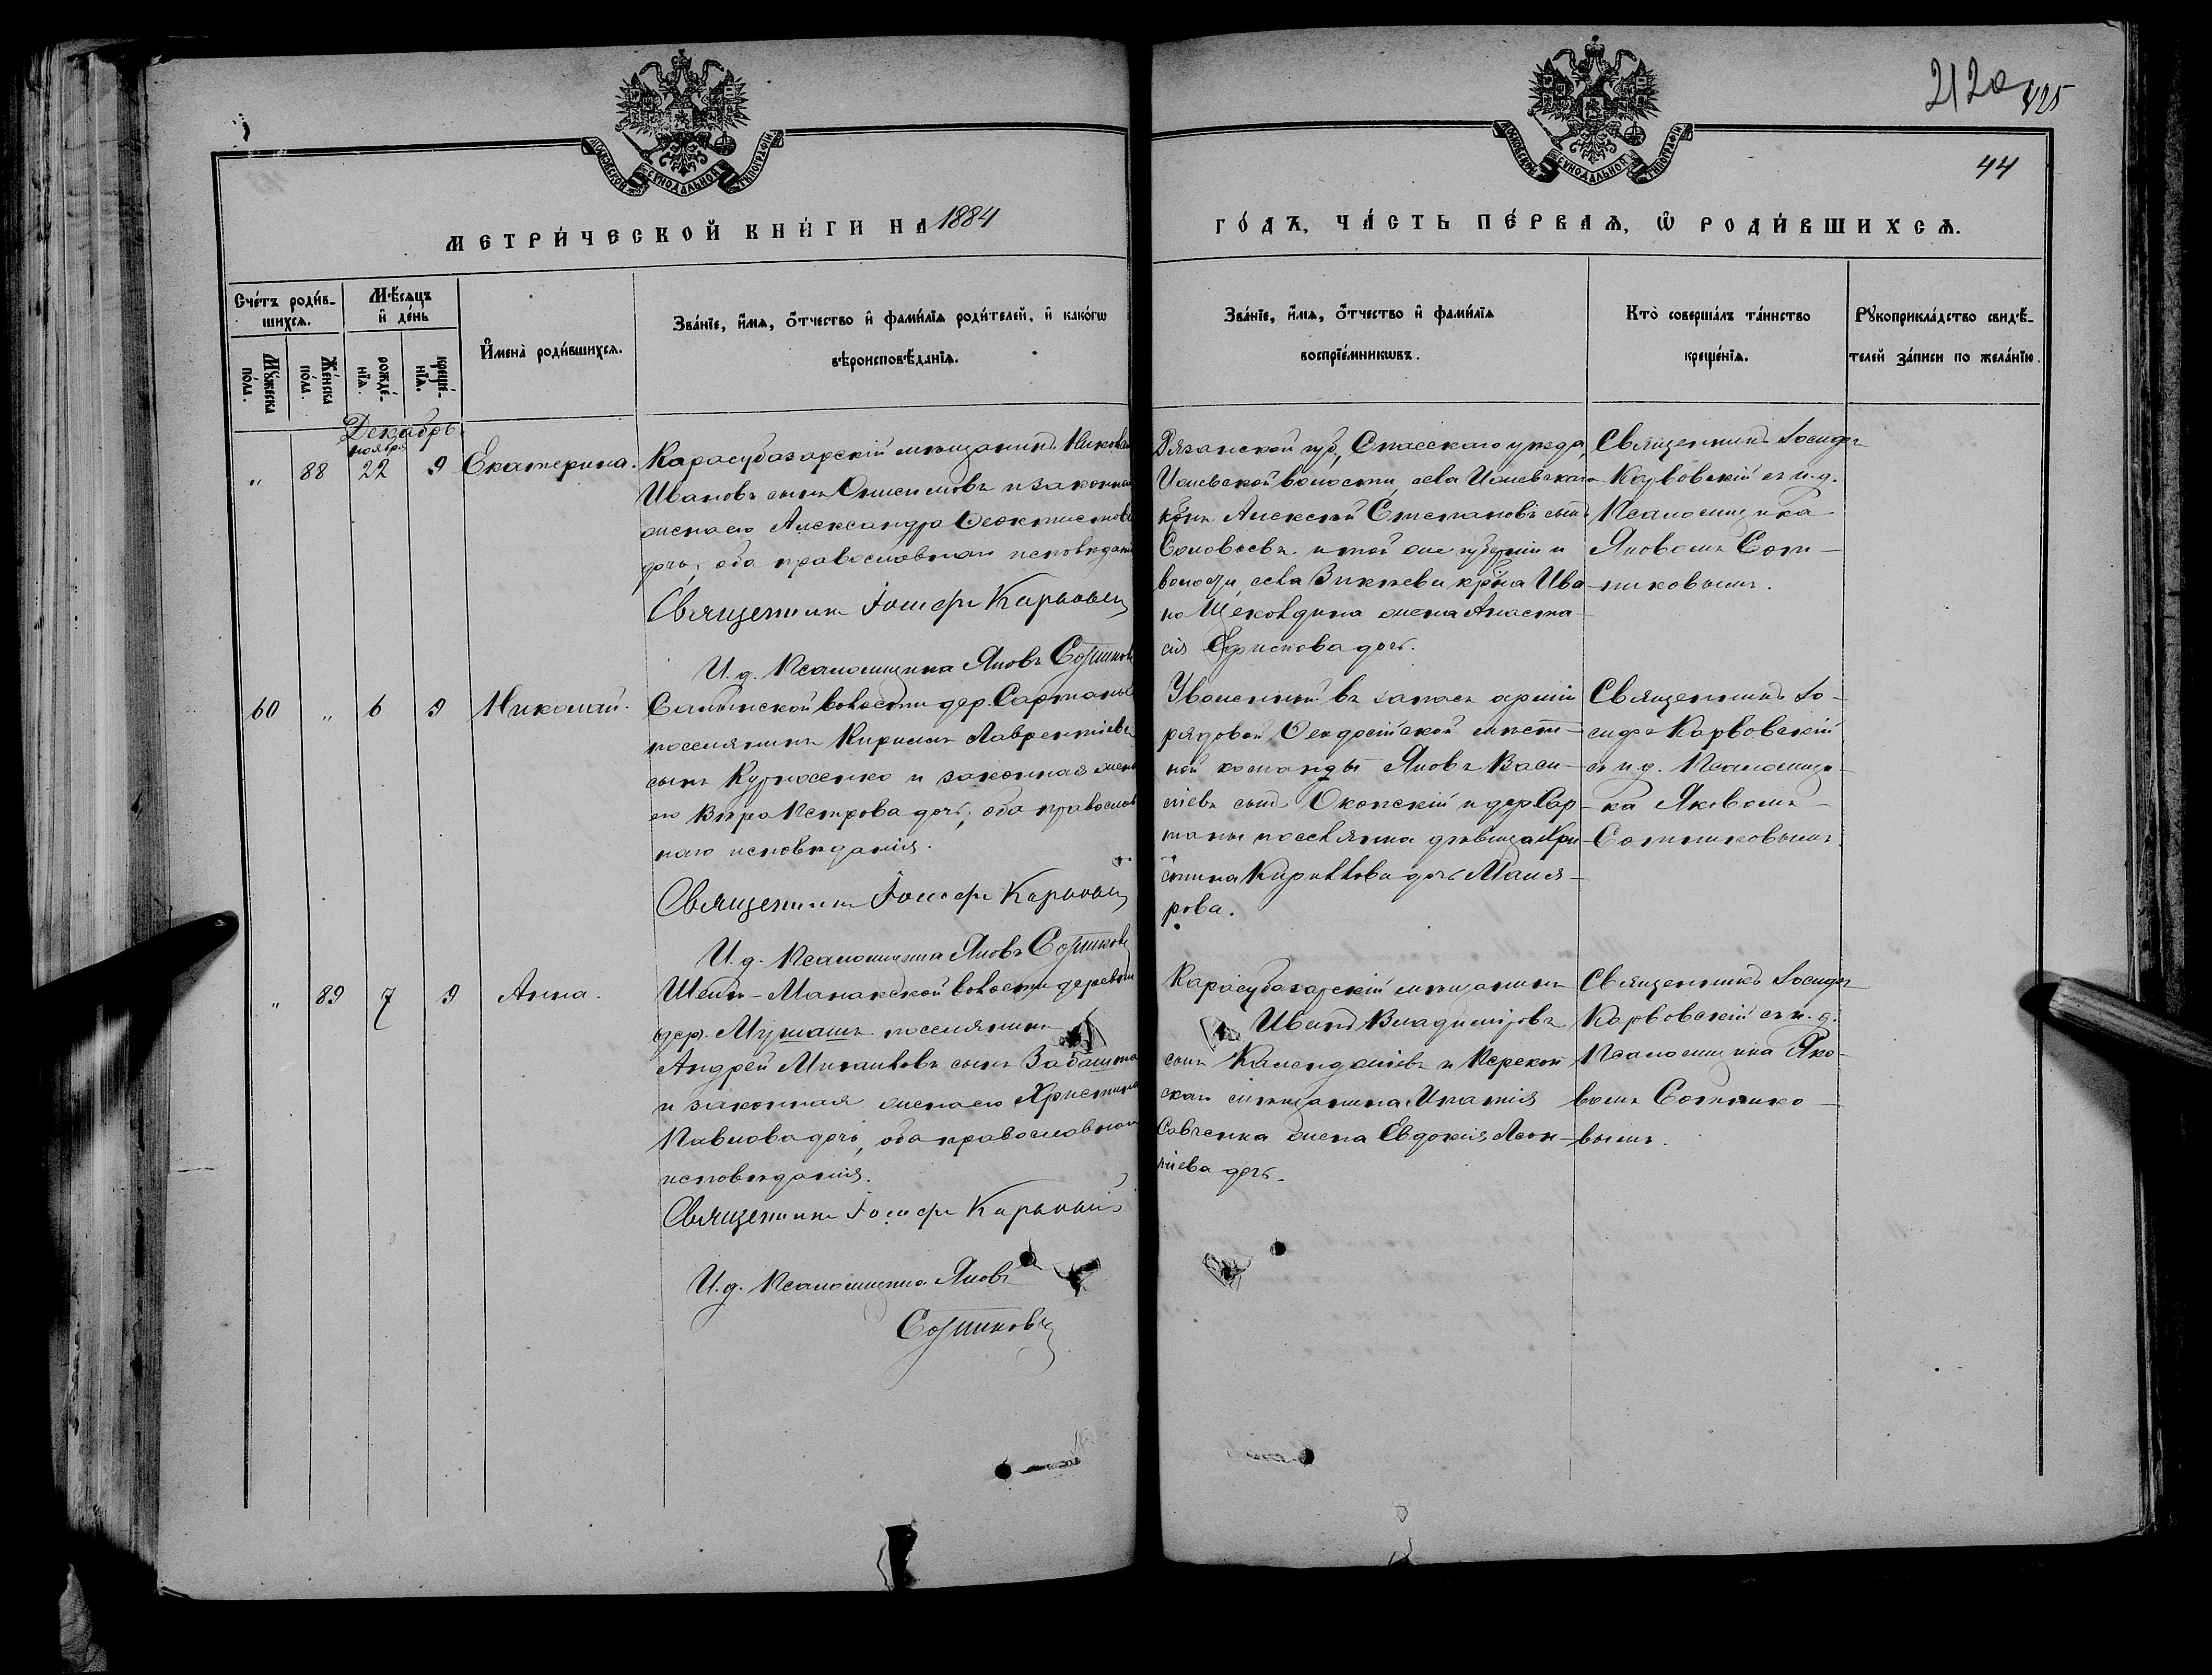 2120
425
44
МОСКОВСКОЙ СѴНОДАЛЬНОЙ ТИПОГРАФІИ
МОСКОВСКОЙ СѴНОДАЛЬНОЙ ТИПОГРАФІИ
МЕТРИ́ЧЕСКОЙ КНИ́ГИ НА 1884
ГО́ДЪ, ЧА́СТЬ ПЕ́РВАѦ, Ѡ҆ РОДИ́ВШИХСѦ.
Сче́тъ роди́в-
шихсѧ.
Мꙋ́жеска
по́ла.
Же́нска
по́ла.
Мѣ́сѧцъ
и҆ де́нь
рожде́-
нїѧ.
креще́-
нїѧ.
И҆мена̀ роди́вшихсѧ.
Зва́нїе, и҆́мѧ, ѻ҆́тчество и҆ фами́лїѧ роди́телей, и҆ како́гѡ
вѣроисповѣ́данїѧ.
Зва́нїе, и҆́мѧ, ѻ҆́тчество и҆ фами́лїѧ
воспрїе́мникѡвъ.
Кто̀ соверша́лъ та́инство
креще́нїѧ.
Рꙋкоприкла́дство свидѣ́-
телей за́писи по жела́нїю.
Декабрь
ноября
„ 88 22 9 Екатерина.
Карасубазарскій мѣщанинъ Никола
Ивановъ сынъ Онисимовъ и законная
жена его Александра Ѳеоктистова
дочь, оба православнаго исповѣдані
Священникъ Іосифъ Карвовскі
И. д. Псаломщика Яковъ Сотников
Рязанской губ., Спасскаго уѣзда,
Ижевской волости, села Ижевскаго
крнъ Алексѣй Степановъ сынъ
Соловьевъ и той же губерніи и
волости, села крна Ива
на жена Анаста-
сія дочь.
Священникъ Іосифъ
Карвовскій съ и. д.
Псаломщика
Яковомъ Сот-
никовымъ.
60 „ 6 9 Николай.
волости дер. Сартаны
поселянинъ Кириллъ Лаврентіевъ
сынъ Курносенко и законная жена
его Вѣра Петрова дочь, оба православ
наго исповѣданія.
Священникъ Іосифъ Карвовскі
И. д. Псаломщика Яковъ Сотников
Уволенный въ запасъ арміи
рядовой Ѳеодосійской мѣст-
ной команды Яковъ Васи-
ліевъ сынъ Оконскій и дер. Сар-
таны поселянка дѣвица Хри-
стина Кириллова дочь
рова.
Священникъ Іо-
сифъ Карвовскій
съ и. д. Псаломщи-
ка Яковомъ
Сотниковымъ.
„ 89 7 9 Анна.
Шейхъ-Монакской волости деревни
дер. Мушашъ поселянинъ
Андрей Михайловъ сынъ Забашта
и законная жена его Христина
Павлова дочь, оба православнаго
исповѣданія.
Священникъ Іосифъ Карвовскій
И. д. Псаломщика Яковъ
Сотниковъ
Карасубазарскій мѣщанинъ
Иванъ Владиміровъ
сынъ и Перекоп
скаго мѣщанина Игнатія
Савченка жена Евдокія Леон-
тіева дочь.
Священникъ Іосифъ
Карвовскій съ и. д.
Псаломщика Яко-
вомъ Сотнико-
вымъ.